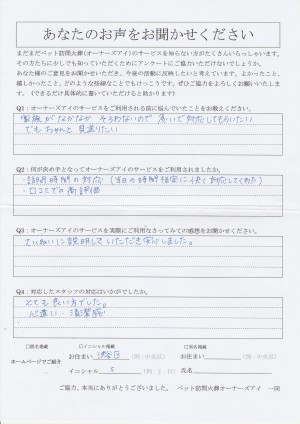 あなたのお声をお聞かせください
まだまだペット訪問火葬(オーナーズアイ)のサービスを知らない方がたくさんいらっしゃいます。
その方たちに少しでも知っていただくためにアンケートにご協力いただけないでしょうか。
あなた様のご意見をお聞かせいただき、今後の活動に反映したいと考えています。よかったこと、
嬉しかったこと、どのような些細なことでもけっこうです。ぜひご協力をよろしくお願いいたします。(できるだけ具体的に書いていただけると助かります)
Q1:オーナーズアイのサービスをご利用される前に悩んでいたことをお教えください。
家族がなかなかそろわないので 急いで対応してもらいたい
でもちゃんと見送りたい
Q2:何が決め手となってオーナーズアイのサービスをご利用されましたか。
・訪問時間の対応(当日の時間指定に快く対応してくれた)
・口コミでの高評価
Q3:オーナーズアイのサービスを実際にご利用なさってみての感想をお聞かせください。
ていねいに説明していただき安心しました。
Q4:対応したスタッフの対応はいかがでしたか。
とても良い方でした。
心遣い・清潔感
ホームページでご紹介
□匿名掲載 □イニシャル掲載 □実名掲載
お住まい 渋谷区 (例:中央区) お住まい (例:中央区)
イニシャル S (例:J.H) 氏名
ご協力、本当にありがとうございました。 ペット訪問火葬オーナーズアイ 一同